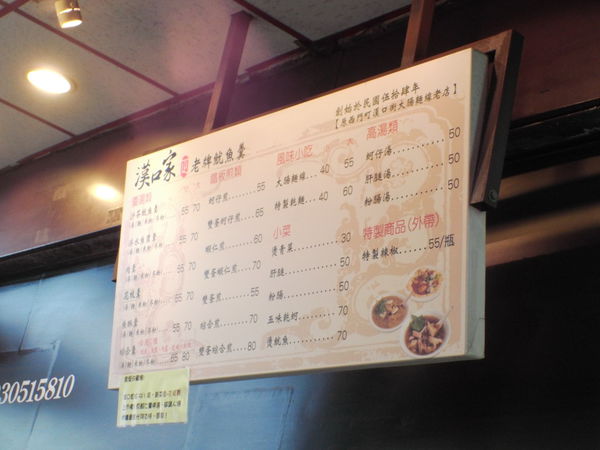 創始於民國伍拾肆年
【原西門町漢口街大腸麵線老店】
漢口家 老牌魷魚羹
羹湯類
小 大
沙茶魷魚羹 55 70
55 70
肉羹 55 70
花枝羹 55 70
魚酥羹 55 70
綜合羹 65 80
鐵板煎類
蚵仔煎......55
雙蛋蚵仔煎....65
蝦仁煎......50
雙蛋蝦仁煎....70
雙蛋煎......55
綜合煎......70
雙蛋綜合煎....80
風味小吃 小 大
大腸麵線...40 55
特製乾麵...40 60
小菜
燙青菜.........30
肝鏈.........50
粉腸.........50
五味乾蚵.........70
燙魷魚.........70
高湯類
蚵仔湯.........50
肝鏈湯.........50
粉腸湯.........50
特製商品(外帶)
特製辣椒......55/瓶
30515810